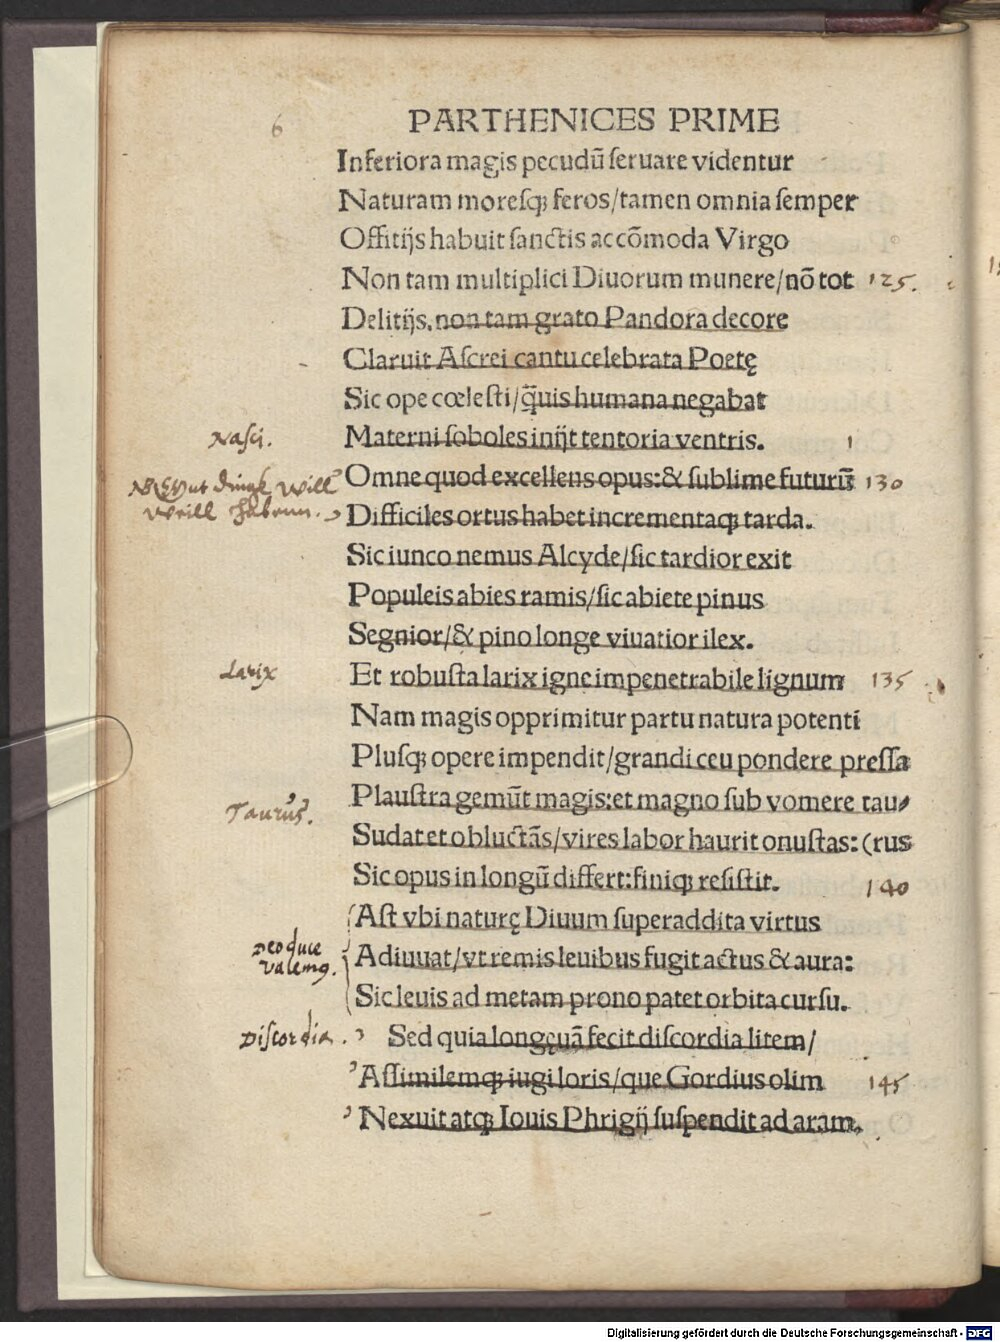 6
PARTHENICES PRIME
Inferiora magis pecudū ſeruare videntur
Naturam moreſqꝫ feros/tamen omnia ſemper
Offitijs habuit ſanctis accōmoda Virgo
Non tam multiplici Diuorum munere/nō tot 125.
Delitijs, non tam grato Pandora decore
Claruit Aſcrei cantu celebrata Poetę
Sic ope cœleſti/q̄uis humana negabat
Naſci. Materni ſoboles inijt tentoria ventris.
Omne quod excellens opus:& ſublime futurū 130
Difficiles ortus habet incrementaqꝫ tarda.
Sic iunco nemus Alcyde/ſic tardior exit
Populeis abies ramis/ſic abiete pinus
Segnior/& pino longe viuatior ilex.
Larix Et robuſta larix igne impenetrabile lignum 135
Nam magis opprimitur partu natura potenti
Pluſqꝫ opere impendit/grandi ceu pondere preſſa
Plauſtra gemūt magis:et magno ſub vomere tau
Taurus. Sudat et obluctās/vires labor haurit onuſtas: (rus
Sic opus in longū differt:finiqꝫ reſiſtit. 140
Aſt vbi naturę Diuum ſuperaddita virtus
Deo duce Adiuuat/vt remis leuibus fugit actus & aura:
Sic leuis ad metam prono patet orbita curſu.
Diſcordia. Sed quia longęuā fecit diſcordia litem/
Aſſimilemqꝫ iugi loris/que Gordius olim 145
Nexuit atqꝫ Iouis Phrigij ſuſpendit ad aram.
Digitalisierung gefördert durch die Deutsche Forschungsgemeinschaft - DFG